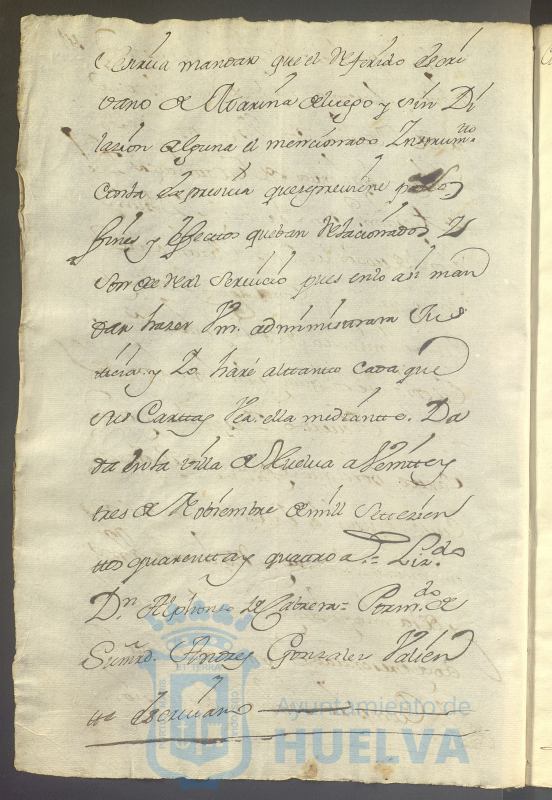 mandar que el referido escri
vano de Marina luego y sin Di
lazion alguna el mencionado Instrum.to
fines y effectos que ban relacionados
son de Real Servicio pues en lo asi man
dar hazer Vm. administrara Jus
ticia y Yo haré al tanto cada que
sus Cartas vea ella mediantte. Da
da en la villa de Huelva a Veintte y
tres de Nobiembre de mill Settezien
ttos quarentta y quattro a.s = Liz.do
D.n Alphonso de Cabrera = Por m.do de
Su mrd. Andres Gonzalez Valien
tte escrivano
Ayuntamiento de
HUELVA